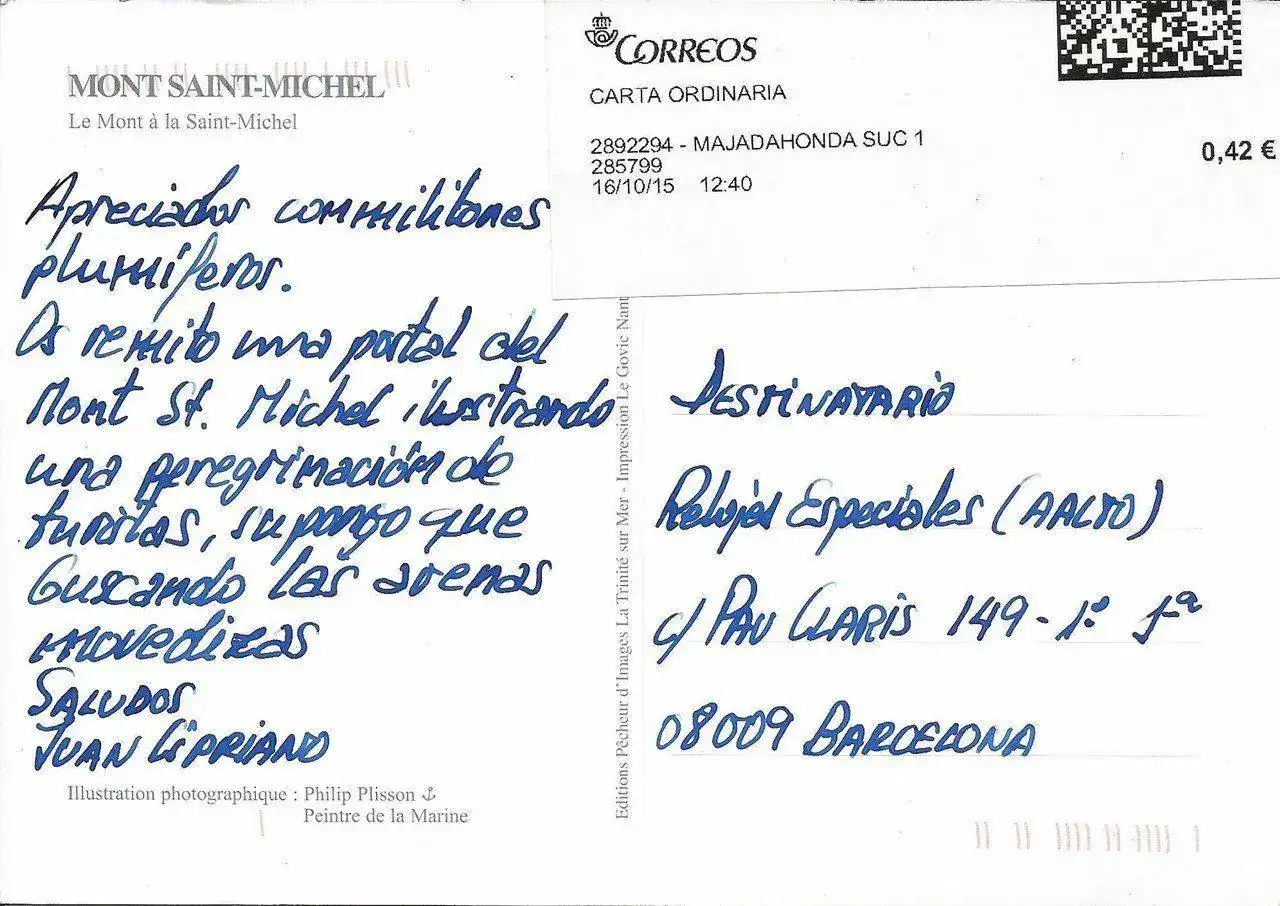 MONT SAINT-MICHEL
Le Mont à la Saint-Michel
Apreciados commilitones
plumíferos.
Os remito una postal del
Mont St. Michel ilustrando
una peregrinación de
turistas, supongo que
buscando las arenas
movedizas
SALUDOS
JUAN CIPRIANO
Illustration photographique : Philip Plisson
Peintre de la Marine
Editions Pêcheur d'Images La Trinité sur Mer - Impression Le Govic
CORREOS
CARTA ORDINARIA
2892294 - MAJADAHONDA SUC 1
285799
16/10/15 12:40
0,42 €
DESTINATARIO
Relojes Especiales (AALTO)
c/ PAU CLARIS 149 - 1º 1ª
08009 BARCELONA